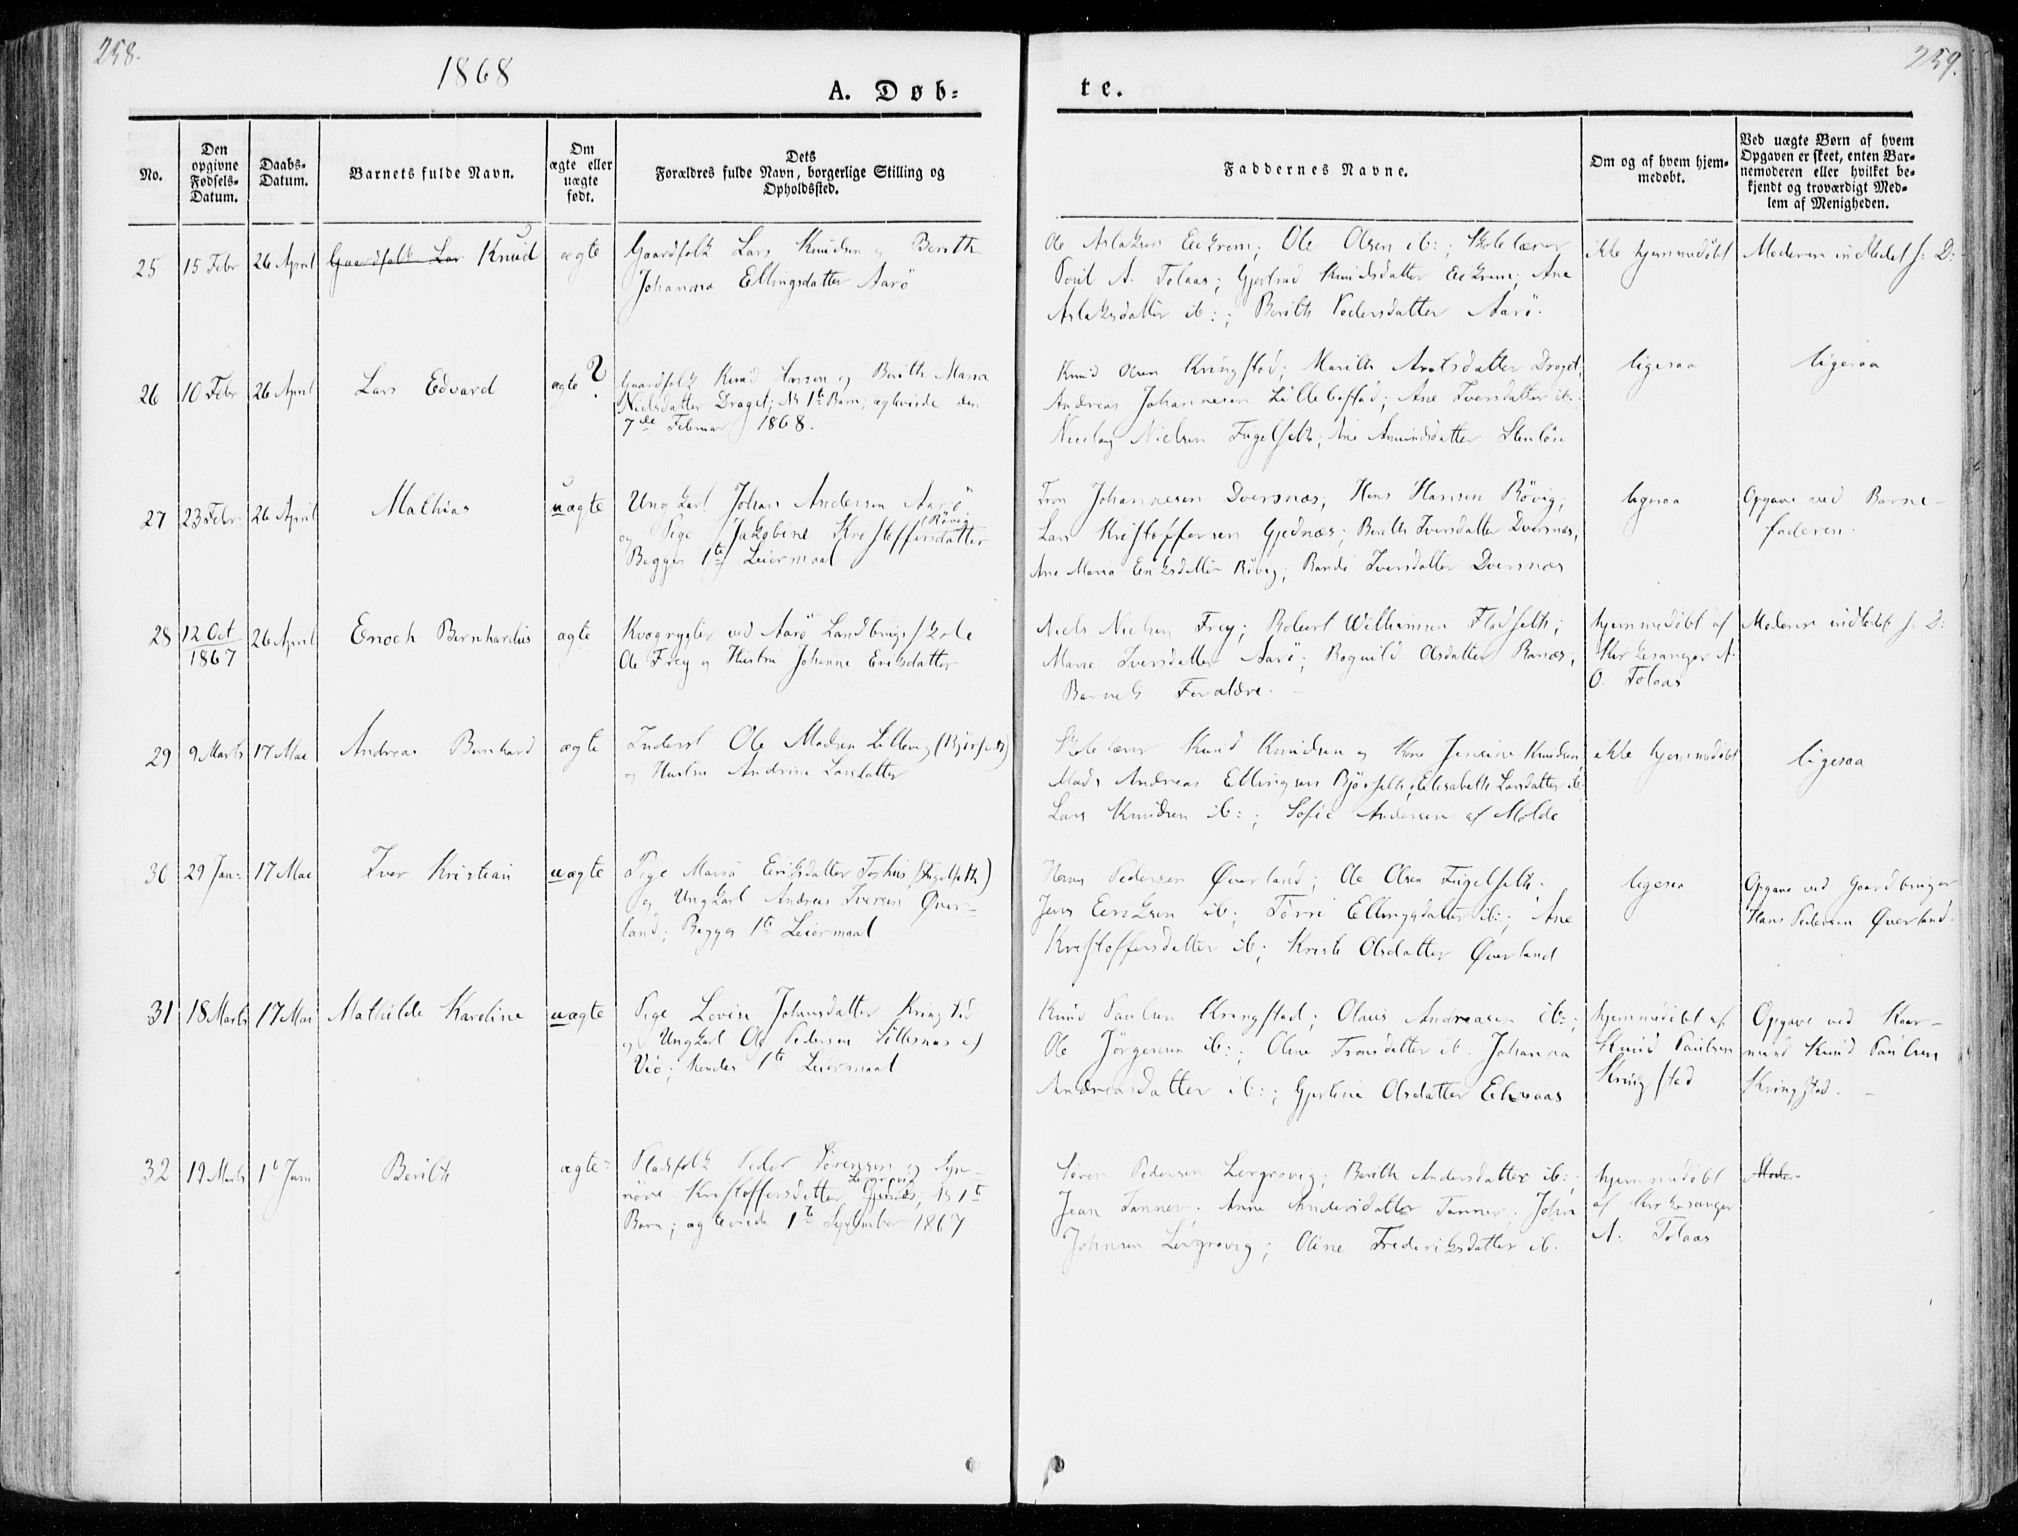 258.
1868
A. Døb=
No.
Den opgivne Fødsels-Datum.
Daabs-Datum.
Barnets fulde Navn.
Om ægte eller uægte født.
Dets Forældres fulde Navn, borgerlige Stilling og Opholdssted.
25 15 Febr 26 April Gaardfolk Lar Knud ægte Gaardfolk Lars Knudsen og Berith
Johanna Ellingsdatter Aarö
26 10 Febr 26 April Lars Edvard ægte ? Gaardfolk Knud Hansen og Berith Maria
Nielsdatter Draget; N 1te Barn; ægteviede den
7de Februar 1868.
27 23 Febr. 26 April Mathias uægte Ungkarl Johan Andersen Aarö
og Pige Jakobine Kristoffersdatter
Røvig
Begges 1te Leiermaal
28 12 Oct 1867 26 April Enoch Bernhardus ægte Kvægrygter ved Aarö Landbrugsskole
Ole Frey og Hustru Johanne Eriksdatter
29 9 Marts 17 Mai Andreas Bernhard ægte Inderst Ole Madsen Lillevig (Bjørseth)
og Hustru Andrine Larsdatter
30 29 Jan: 17 Mai Iver Kristian uægte Pige Maria Eriksdatter Torhus (Fugelseth)
og Ungkarl Andreas Iversen Øver-
land; Begges 1te Leiermaal
31 18 Marts 17 Mai Mathilde Karoline uægte Pige Lovise Johansdatter Kringsted
og Ungkarl Ole Pedersen Sillesnæs af
Veö; Hendes 1te Leiermaal
32 19 Marts 1te Juni Berith ægte: Pladsfolk Peder Sörensen og Syn-
növe Kristoffersdatter Gjednæs, N 1te
Lergrovig
Barn; ægteviede 1te September 1867
259.
te.
Faddernes Navne.
Om og af hvem hjem-
medøbt.
Ved uægte Børn af hvem
Opgaven er skeet, enten Bar-
nemoderen eller hvilket be-
kjendt og troværdigt Med-
lem af Menigheden.
Ole Aslaksen Eekrem; Ole Olsen ib:; Skolelærer ikke hjemmedöbt Moderen indledet s: D:
Poul A. Tolaas; Gjertrud Knudsdatter Eekrem; Ane
Aslaksdatter ib:; Berith Pedersdatter Aarö.
Knud Olsen Kringstad; Marith Arntsdatter Draget; ligesaa ligesaa
Andreas Johannesen Lillebostad; Ane Iversdatter ib:
Nicolay Nielsen Fugelseth; Ane Amundsdatter Stenlöse
Tron Johannesen Dversnæs; Hans Hansen Rövig; ligesaa Opgave ved Barne-
Lars Kristoffersen Gjednæs; Berith Iversdatter Dversnæs; faderen.
Ane Maria Eriksdatter Rövig; Randi Iversdatter Dversnæs
Niels Nielsen Frey; Robert Williamsen Flodseth; hjemmedöbt af Moderen indledet s: D:
Marie Iversdatter Aarö; Rognild Olsdatter Ranæs; Kirkesanger A.
Barnets Forældre. O. Tolaas
Skolelærer Knud Knudsen og Kone Jensine Knudsen, ikke hjemmedöbt ligesaa
Mads Andreas Ellingsen Bjørseth; Elisabeth Larsdatter ib:
Lars Knudsen ib:; Sofie Andersen af Molde
Hans Pedersen Øverland; Ole Olsen Fugelseth. ligesaa Opgave ved Gaardbruger
Jens Eeriksen ib; Törri Ellingsdatter ib:; Ane Hans Pedersen Øverland.
Kristoffersdatter ib; Kristi Olsdatter Øverland
Knud Paulsen Kringstad; Olaus Andreasen ib:; hjemmedöbt af Opgave ved Kaar-
Ole Jörgensen ib:; Oline Tronsdatter ib. Johanna Knud Paulsen mand Knud Paulsen
Andreasdatter ib:; Gjertine Olsdatter Eikraas Kringsted Kringstad.
Sören Pedersen Lergrovig; Berith Andersdatter ib:; hjemmedöbt Moder
Jean Tanner; Anne Andersdatter Tanner; John af Kirkesanger
Johnsen Lergrovig; Oline Frederiksdatter ib. A. Tolaas